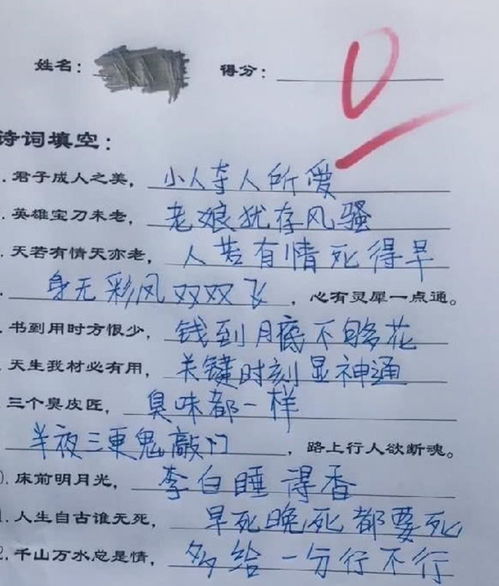 姓名： 得分： 0
诗词填空：
.君子成人之美，小人夺人所爱
.英雄宝刀未老，老娘犹存风骚
.天若有情天亦老，人若有情死得早
.身无彩凤双双飞，心有灵犀一点通。
.书到用时方恨少，钱到月底不够花
.天生我材必有用，关键时刻显神通
.三个臭皮匠，臭味都一样
半夜三更鬼敲门，路上行人欲断魂。
0.床前明月光，李白睡得香
1.人生自古谁无死，早死晚死都要死
2.千山万水总是情，多给一分行不行